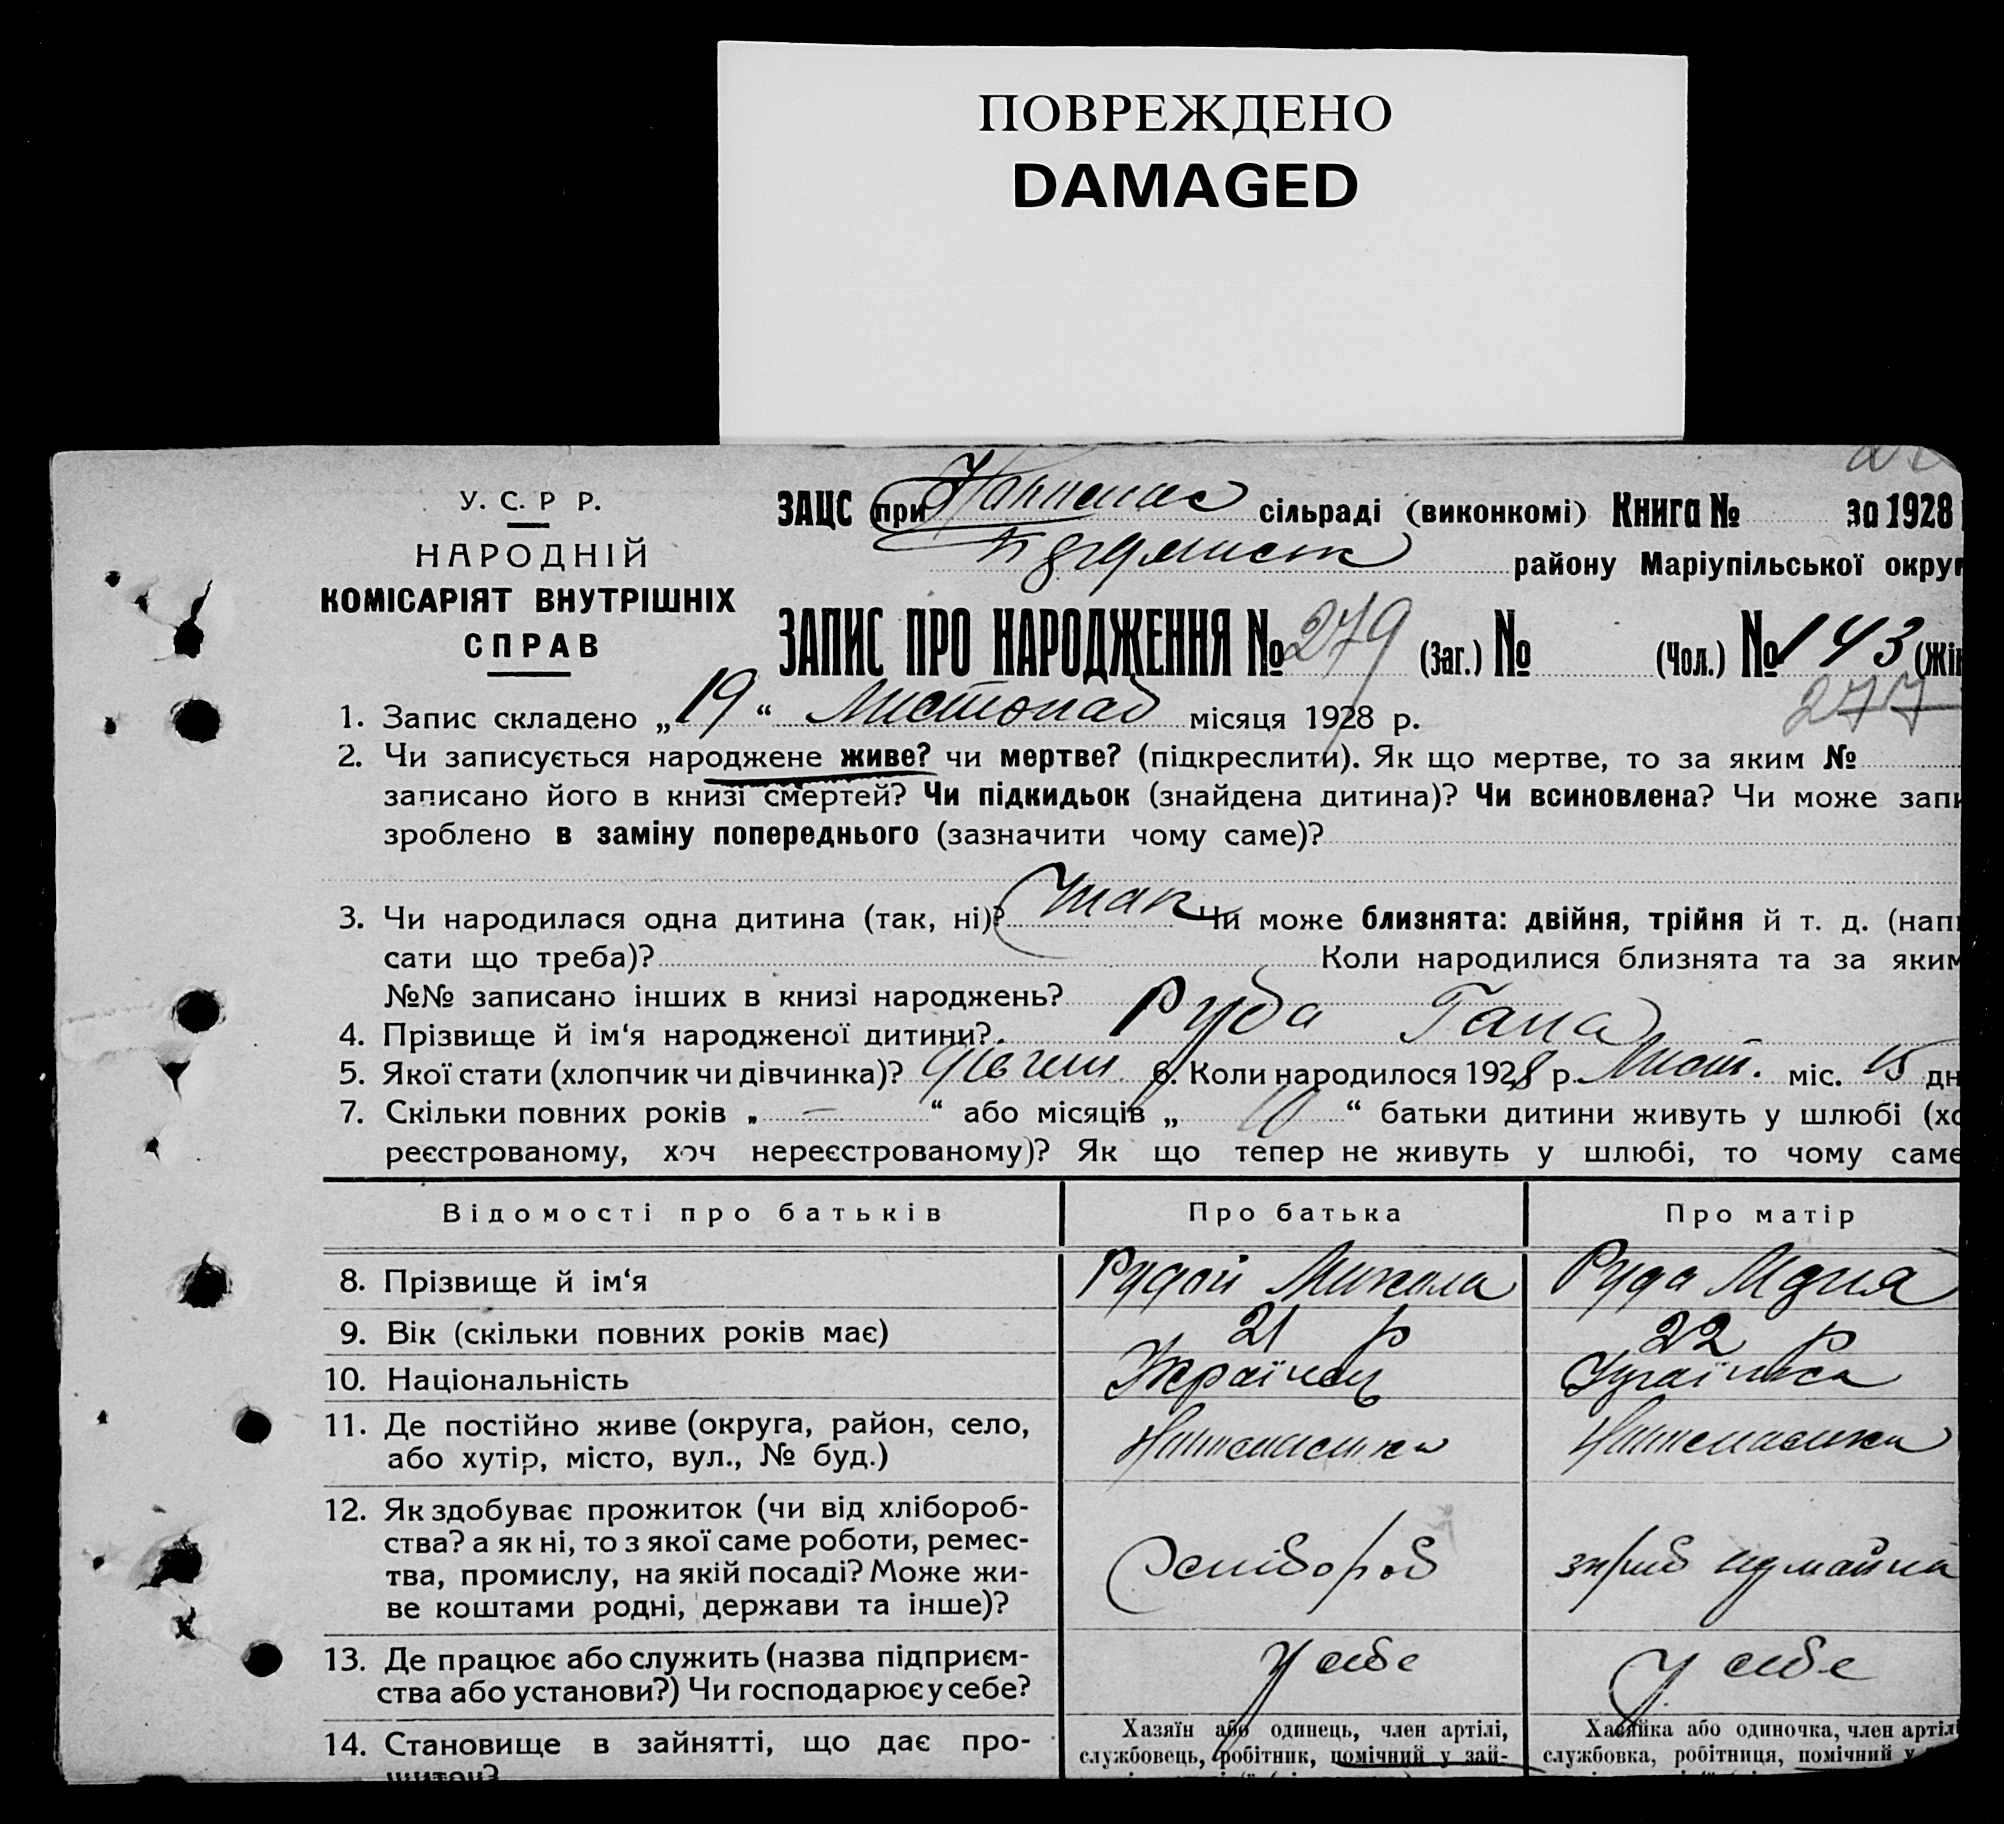 ПОВРЕЖДЕНО
DAMAGED
У. С. Р Р.
НАРОДНІЙ
КОМІСАРІЯТ ВНУТРІШНІХ
СПРАВ
ЗАЦС при сільраді (виконкомі) Книга № за 1928
району Маріупільської округ
ЗАПИС ПРО НАРОДЖЕННЯ № 279 (Заг.) № (Чол.) № 143 (Жін
277
1. Запис складено „ 19 “ Листопад місяця 1928 р.
2. Чи записується народжене живе? чи мертве? (підкреслити). Як що мертве, то за яким №
записано його в книзі смертей? Чи підкидьок (знайдена дитина)? Чи всиновлена? Чи може запи
зроблено в заміну попереднього (зазначити чому саме)?
3. Чи народилася одна дитина (так, ні)? так Чи може близнята: двійня, трійня й т. д. (напи
сати що треба)? Коли народилися близнята та за яким
№№ записано інших в книзі народжень?
4. Прізвище й ім‘я народженої дитини? Руда Гана
5. Якої стати (хлопчик чи дівчинка)? дівчин 6. Коли народилося 1928 р. Лист. міс. 15 дн
7. Скільки повних років „ — “ або місяців „ 10 “ батьки дитини живуть у шлюбі (хо
реєстрованому, хоч нереєстрованому)? Як що тепер не живуть у шлюбі, то чому саме
Відомості про батьків Про батька Про матір
8. Прізвище й ім‘я Рудой Микола Руда
9. Вік (скільки повних років має) 21 р 22 р
10. Національність Українец Українка
11. Де постійно живе (округа, район, село,
або хутір, місто, вул., № буд.)
12. Як здобуває прожиток (чи від хлібороб-
ства? а як ні, то з якої саме роботи, ремес-
тва, промислу, на якій посаді? Може жи-
ве коштами родні, держави та інше)?
хлібороб
13. Де працює або служить (назва підприєм-
ства або установи?) Чи господарює у себе?
у себе у себе
14. Становище в зайнятті, що дає про-
житок?
Хазяїн або одинець, член артілі,
службовець, робітник, помічний у зай-
Хазяйка або одиночка, член артілі
службовка, робітниця, помічний у